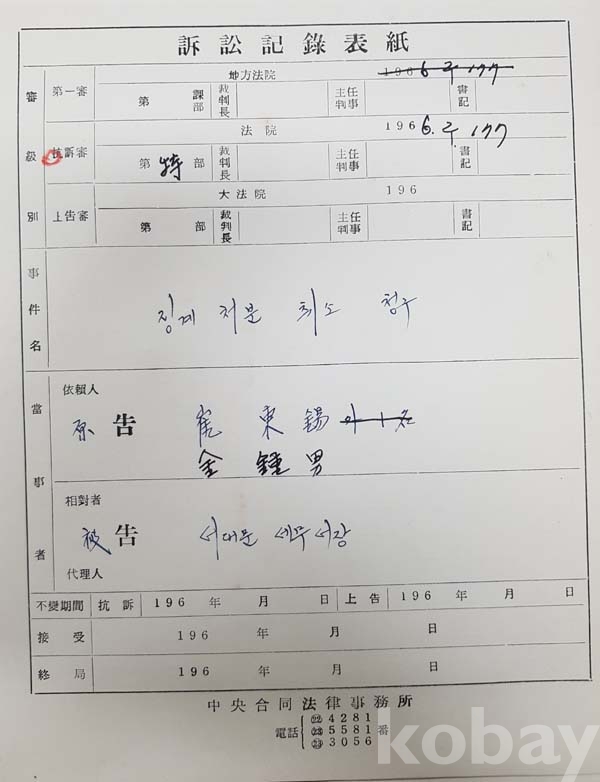 訴訟記錄表紙
審級別
第一審 地方法院 1966 구 177
第 課部 裁判長 主任判事 書記
抗訴審 法院 1966. 구 177
第 特 部 裁判長 主任判事 書記
上告審 大法院 196
第 部 裁判長 主任判事 書記
事件名 징계 처분 취소 청구
當事者
依賴人
原告 崔東錫 外1名
金鍾男
相對者
被告 서대문 세무서장
代理人
不變期間 抗訴 196 年 月 日 上告 196 年 月 日
接受 196 年 月 日
終局 196 年 月 日
中央合同法律事務所
電話 ㉒4281 ㉘5581 ㉓3056 番
kobay